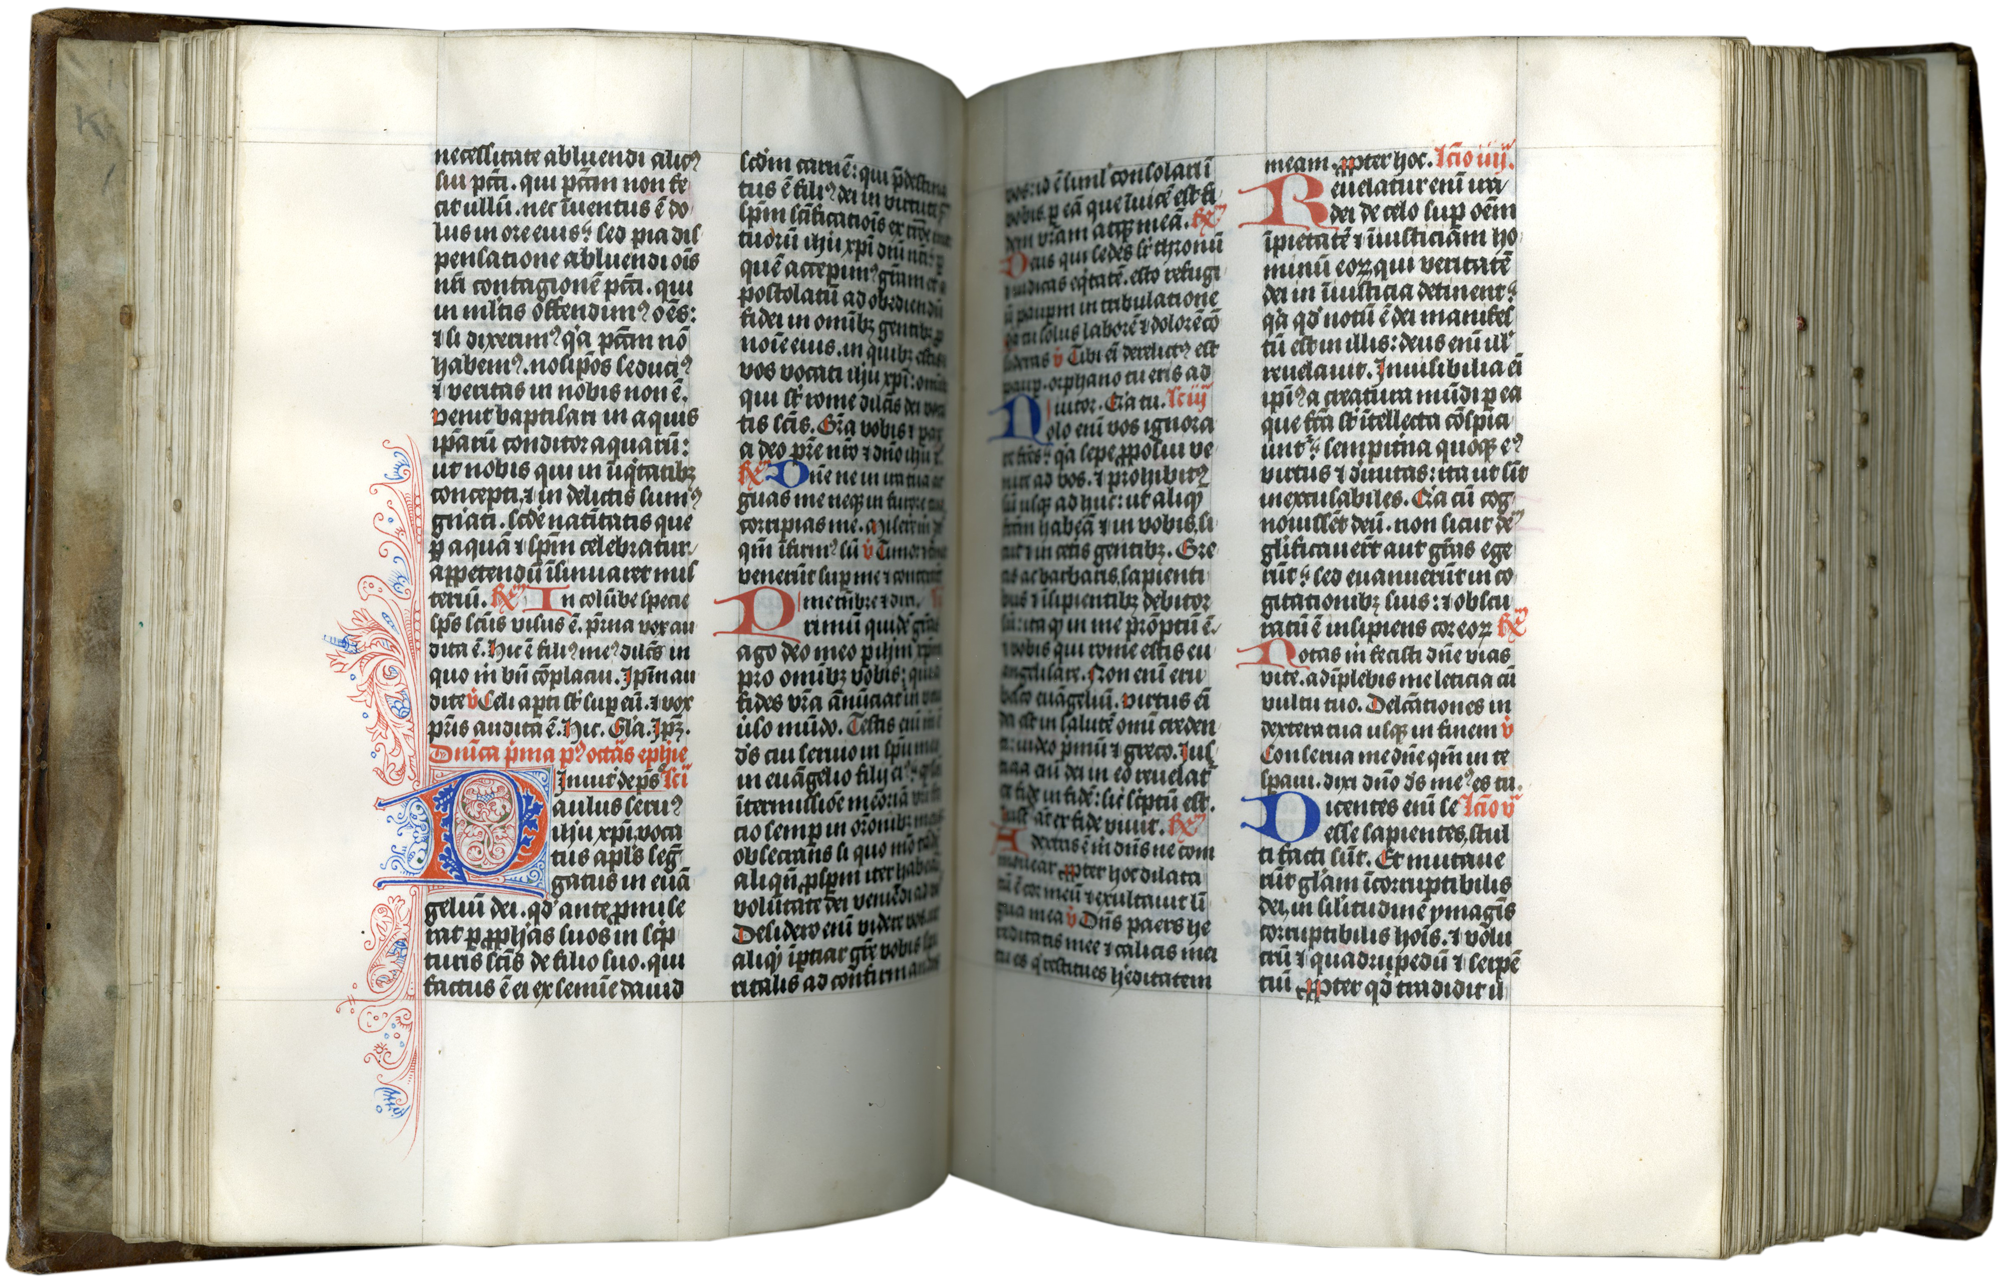 necessitate abluendi alicꝰ
sui pcti . qui pctm non fe
cit ullū . nec īuentus ē do
lus in ore eius : sed pia dis
pensatione abluendi oīs
nri contagionē pcti . qui
in mltis offendimꝰ oēs :
⁊ si dixerimꝰ qꝛ pctm nō
habemꝰ . nosipōs seducīꝰ
⁊ veritas in nobis non ē .
venit baptisari in aquis
ipārū conditor aquarū :
ut nobis qui in iīqtatibꝫ
concepti . ⁊ in delictis sumꝰ
gnati . scdē natītatis que
ꝑ aquā ⁊ spm celebratur
appetendū īsinuaret mis
teriū . Rx In colūbe specie
sps scūs visus ē . pͥma vox au
dita ē . Hic ē filiꝰ meꝰ dilcūs in
quo in bn̄ cōplacui . Ipm au
dite v̄ Celi apti st sup eū . ⁊ vox
pris audita ē . Hic . Gla . Ipꝫ .
Dnica pͥma pꝰ octās ephie
Inuit de ps lci
Paulus seruꝰ
ihu xpi . voca
tus apls seg̅
gatus in euā
geliū dei . qd ante ꝓmise
rat ꝑ ꝓphās suos in scp
turis scīs de filio suo . qui
factus ē ei ex semīe dauid
scdm carnē : qui pdestina
tus ē filiꝰ dei in virtute
spm scīficatiōis ex
tuorū ihu xpi dni nri : ꝑ
quē accepimꝰ grām et a
postolatū ad obediendū
fidei in omībꝫ gentibꝫ ꝓ
noīe eius . in quibꝫ estis
vos vocati ihu xpi : omībꝫ
qui st rome dilcīs dei voca
tis scīs . Gra vobis ⁊ pax
a deo pre nro ⁊ dno ihu
Rx Dne ne in ira tua ar
guas me neqꝫ in furore tuo
corripias me . Miserere
qm īfirmꝰ sū v̄ Timor
venerūt sup me ⁊ contexerūt
me tenebre ⁊ dixi .
Primū quidē grās
ago deo meo ꝑ ihm xpm
pro omībꝫ vobis : quia
fides vra ānūciat in vni
ūso mūdo . Testis eni m ē
ds cui seruo in spu meo
in euāgelio filij eiꝰ : q sn
īntermissiōe mēoriā vri fa
cio semꝑ in orōnibꝫ meis
obsecrans si quo mō tādē
aliqn̄ ꝓspm iter habeā
volūtate dei veniēdi ad vos
Desidero enī videre vos . ut
aliqd īpciar gre vobis spi
ritalis ad confirmandos
vos : id ē siml consolari ī
vobis ꝑ eā que īuicē est fi
dem vrām atqꝫ meā . Rx
Deus qui sedes sr thronū
⁊ iudicas eqtatē . esto refugi
ū paupm in tribulatione
Qꝛ tu solus laborē ⁊ dolorē cō
sideras v̄ Tibi eī derelictꝰ est
paup . orphano tu eris ad
iutor . Qꝛ tu . lc iij
Nolo enī vos ignora
re frēs : qꝛ sepe ꝓposui ve
nire ad vos . ⁊ prohibitꝰ
sū usqꝫ ad huc : ut aliqd
frctm habeā ⁊ in vobis . si
cut ⁊ in cetis gentibꝫ . Gre
cis ac barbaris . sapienti
bus ⁊ īsipientibꝫ debitor
sū : ita qd in me prōptū ē .
⁊ vobis qui rome estis eu
angelizare . Non enī eru
besco euāgeliū . virtus eī
dei est in salutē omī creden
ti : iudeo pmū ⁊ greco . Jus
ticia eni dei in eo reuelat
ex fide in fidē : sic scptū est .
Just at ex fide viuit . Rx
A dextris ē m dns ne com
mouear . ꝓpter hoc dilata
tū ē cor meū ⁊ exultauit lī
gua mea v̄ Dns pars he
reditatis mee ⁊ calicis mei
tu es q restitues heditatem
meam . ꝓpter hoc . lctio iiij .
Reuelatur enī ira
dei de celo sup oēm
īpietatē ⁊ īiusticiām ho
minū eorꝫ qui veritatē
dei in īiusticia detinent :
qꝛ qd notū ē dei manifes
tū est in illis : deus enī ill
reuelauit . Inuisibilia eī
ipiꝰ a creatura mūdi ꝑ ea
que fcta st ītellecta cōspici
unt : sempitna quoqꝫ eiꝰ
virtus ⁊ diuītas : ita ut sīt
inexcusabiles . Qꝛ cū cog
nouissēt deū . non sicut deū
glīficauert aut grās ege
rūt : sed euanuerūt in co
gitationibꝫ suis : ⁊ obscu
ratū ē insipiens cor eorꝫ Rx
Notas m fecisti dne vias
vite . adīplebis me leticia cū
vultu tuo . Delcātiones in
dextera tua usqꝫ in finem v̄
Conserua me dne qm in te
spaui . dixi dno ds meꝰ es tu .
Dicentes enī se lctio v
esse sapientes . stul
ti facti sūt . Et mutaue
rūt glām īcorruptibilis
dei . in silitudinē ymagīs
corruptibilis hoīs . ⁊ volu
crū ⁊ quadrupedū ⁊ serpē
tiū ꝓpter qd tradidit il